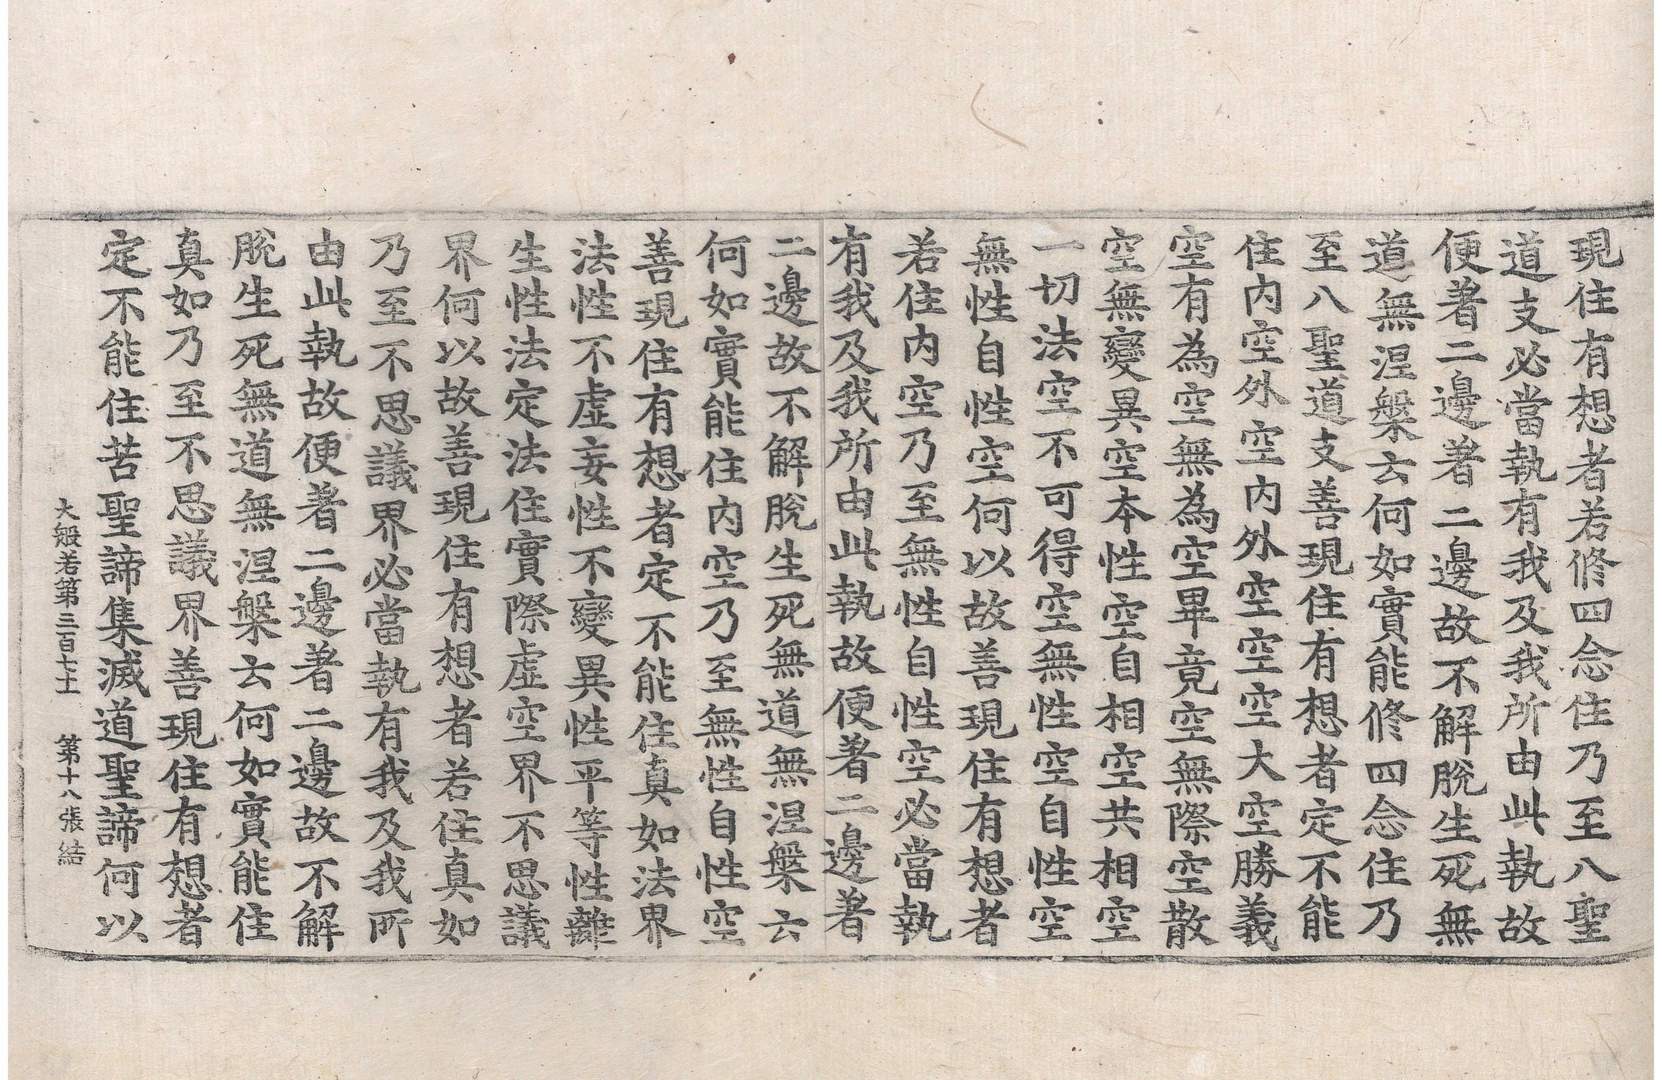 現住有想者若修四念住乃至八聖
道支必當執有我及我所由此執故
便著二邊著二邊故不解脫生死無
道無涅槃云何如實能修四念住乃
至八聖道支善現住有想者定不能
住內空外空內外空空空大空勝義
空有為空無為空畢竟空無際空散
空無變異空本性空自相空共相空
一切法空不可得空無性空自性空
無性自性空何以故善現住有想者
若住內空乃至無性自性空必當執
有我及我所由此執故便著二邊著
二邊故不解脫生死無道無涅槃云
何如實能住內空乃至無性自性空
善現住有想者定不能住真如法界
法性不虛妄性不變異性平等性離
生性法定法住實際虛空界不思議
界何以故善現住有想者若住真如
乃至不思議界必當執有我及我所
由此執故便著二邊著二邊故不解
脫生死無道無涅槃云何如實能住
真如乃至不思議界善現住有想者
定不能住苦聖諦集滅道聖諦何以
大般若第三百七十 第十八張結